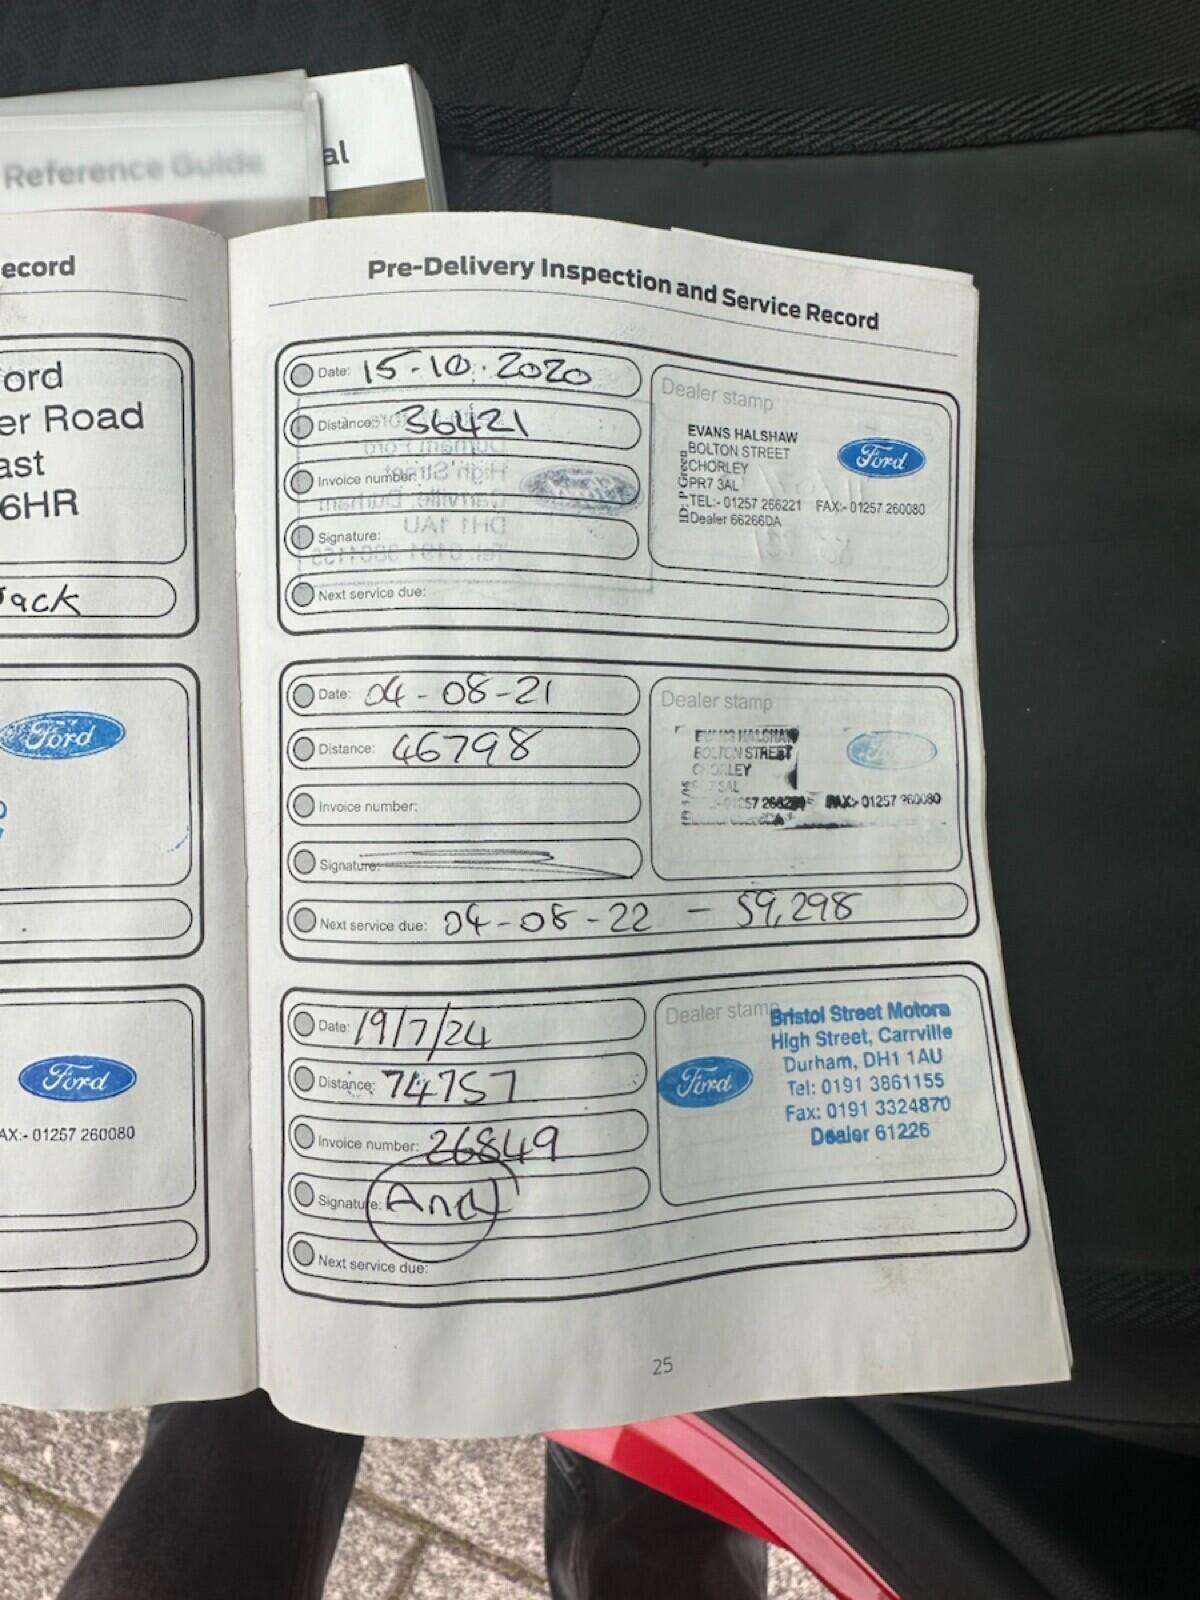 Reference Guide
al
ecord
ord
er Road
ast
6HR
ack
Ford
Ford
AX:- 01257 260080
Pre-Delivery Inspection and Service Record
Date: 15-10-2020
Distance: 36421
Invoice number:
Signature:
Next service due:
Dealer stamp
EVANS HALSHAW
BOLTON STREET
CHORLEY
PR7 3AL
TEL:- 01257 266221 FAX:- 01257 260080
Dealer 66266DA
Ford
Date: 04-08-21
Distance: 46798
Invoice number:
Signature:
Next service due: 04-08-22 - 59,298
Dealer stamp
EVANS HALSHAW
BOLTON STREET
CHORLEY
FAX:- 01257 260080
Ford
Date: 19/7/24
Distance: 74757
Invoice number: 26849
Signature:
Next service due:
Dealer stamp
Ford
Bristol Street Motors
High Street, Carrville
Durham, DH1 1AU
Tel: 0191 3861155
Fax: 0191 3324870
Dealer 61226
25